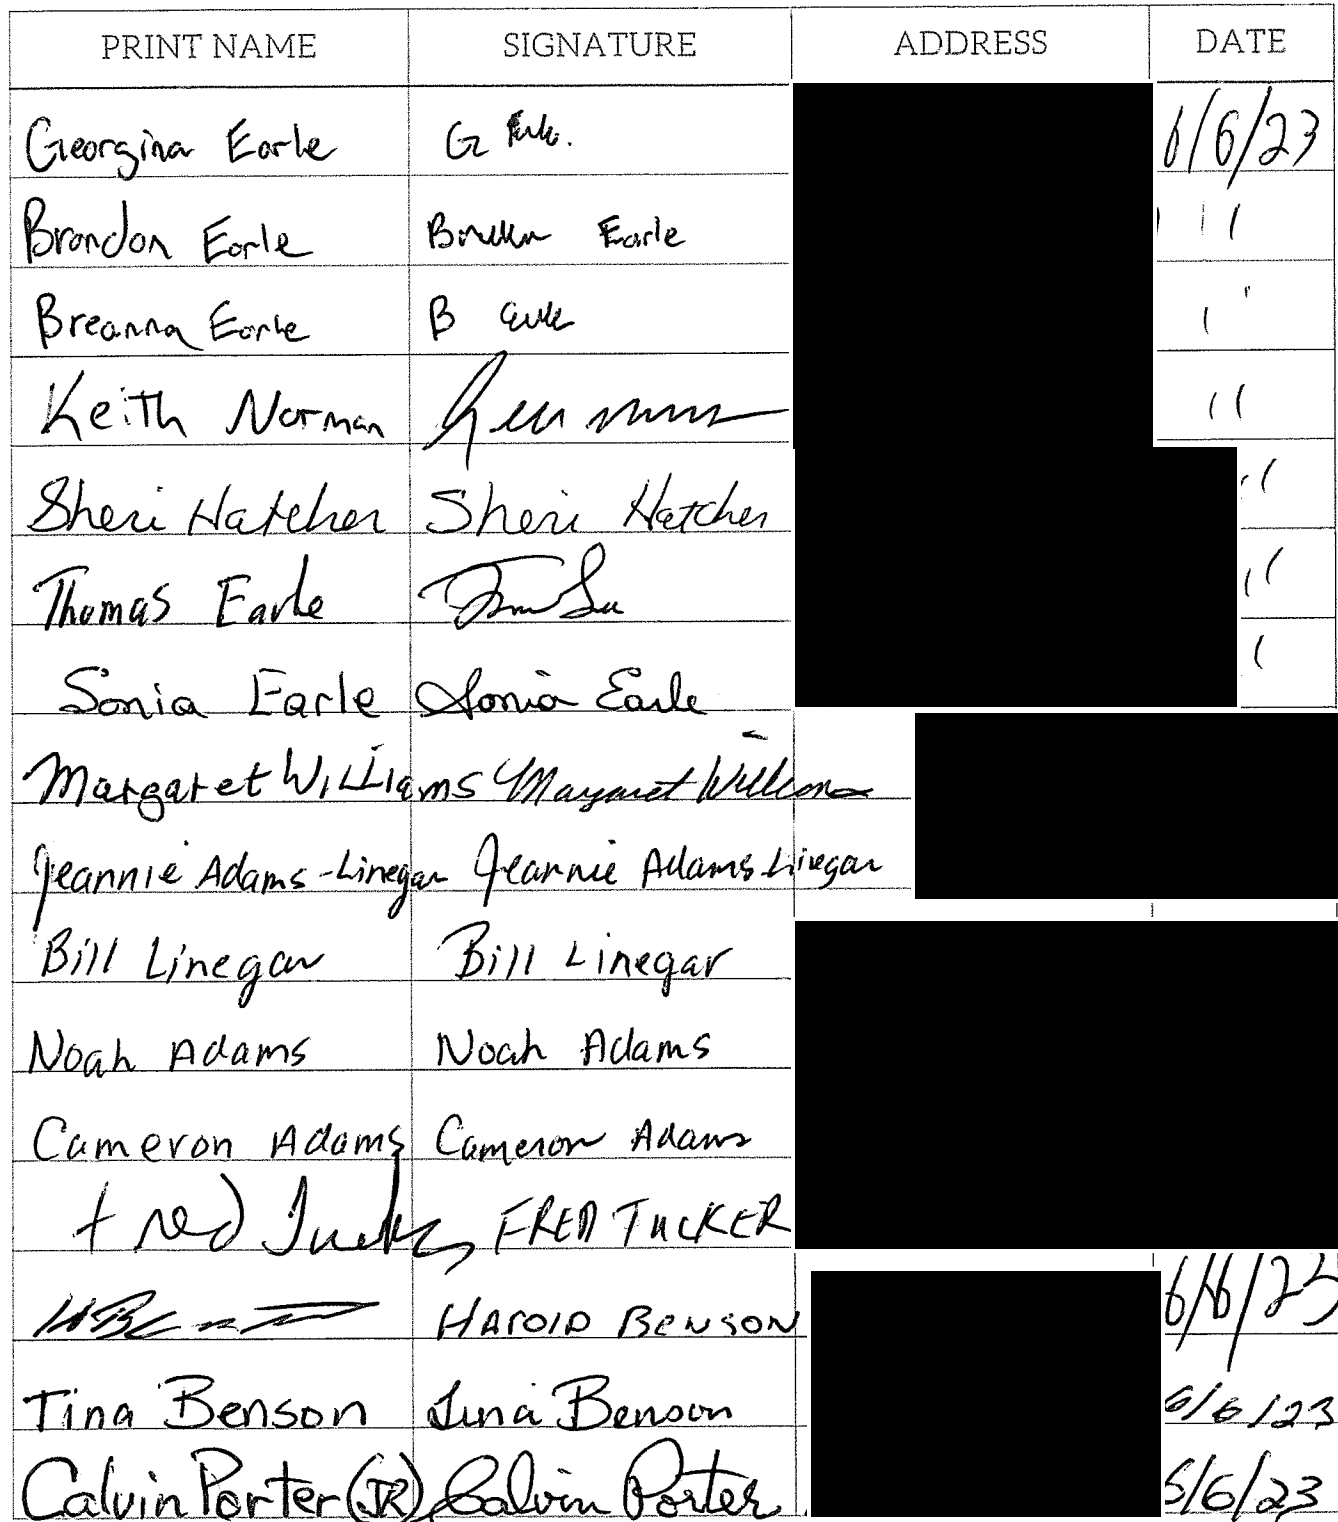 PRINT NAME SIGNATURE ADDRESS DATE
Georgina Earle G 6/6/23
Brandon Earle Earle 11
Breanna Earle B
Keith Norman 11
Sheri Hatcher Sheri Hatcher 11
Thomas Earle 11
Sonia Earle Sonia Earle
Margaret Williams Margaret Williams
Jeannie Adams-Linegar Jeannie Adams-Linegar
Bill Linegar Bill Linegar
Noah Adams Noah Adams
Cameron Adams Cameron Adams
Fred Tucker FRED TUCKER
HAROLD BENSON 6/6/23
Tina Benson Tina Benson 6/6/23
Calvin Porter (JR) Calvin Porter 6/23